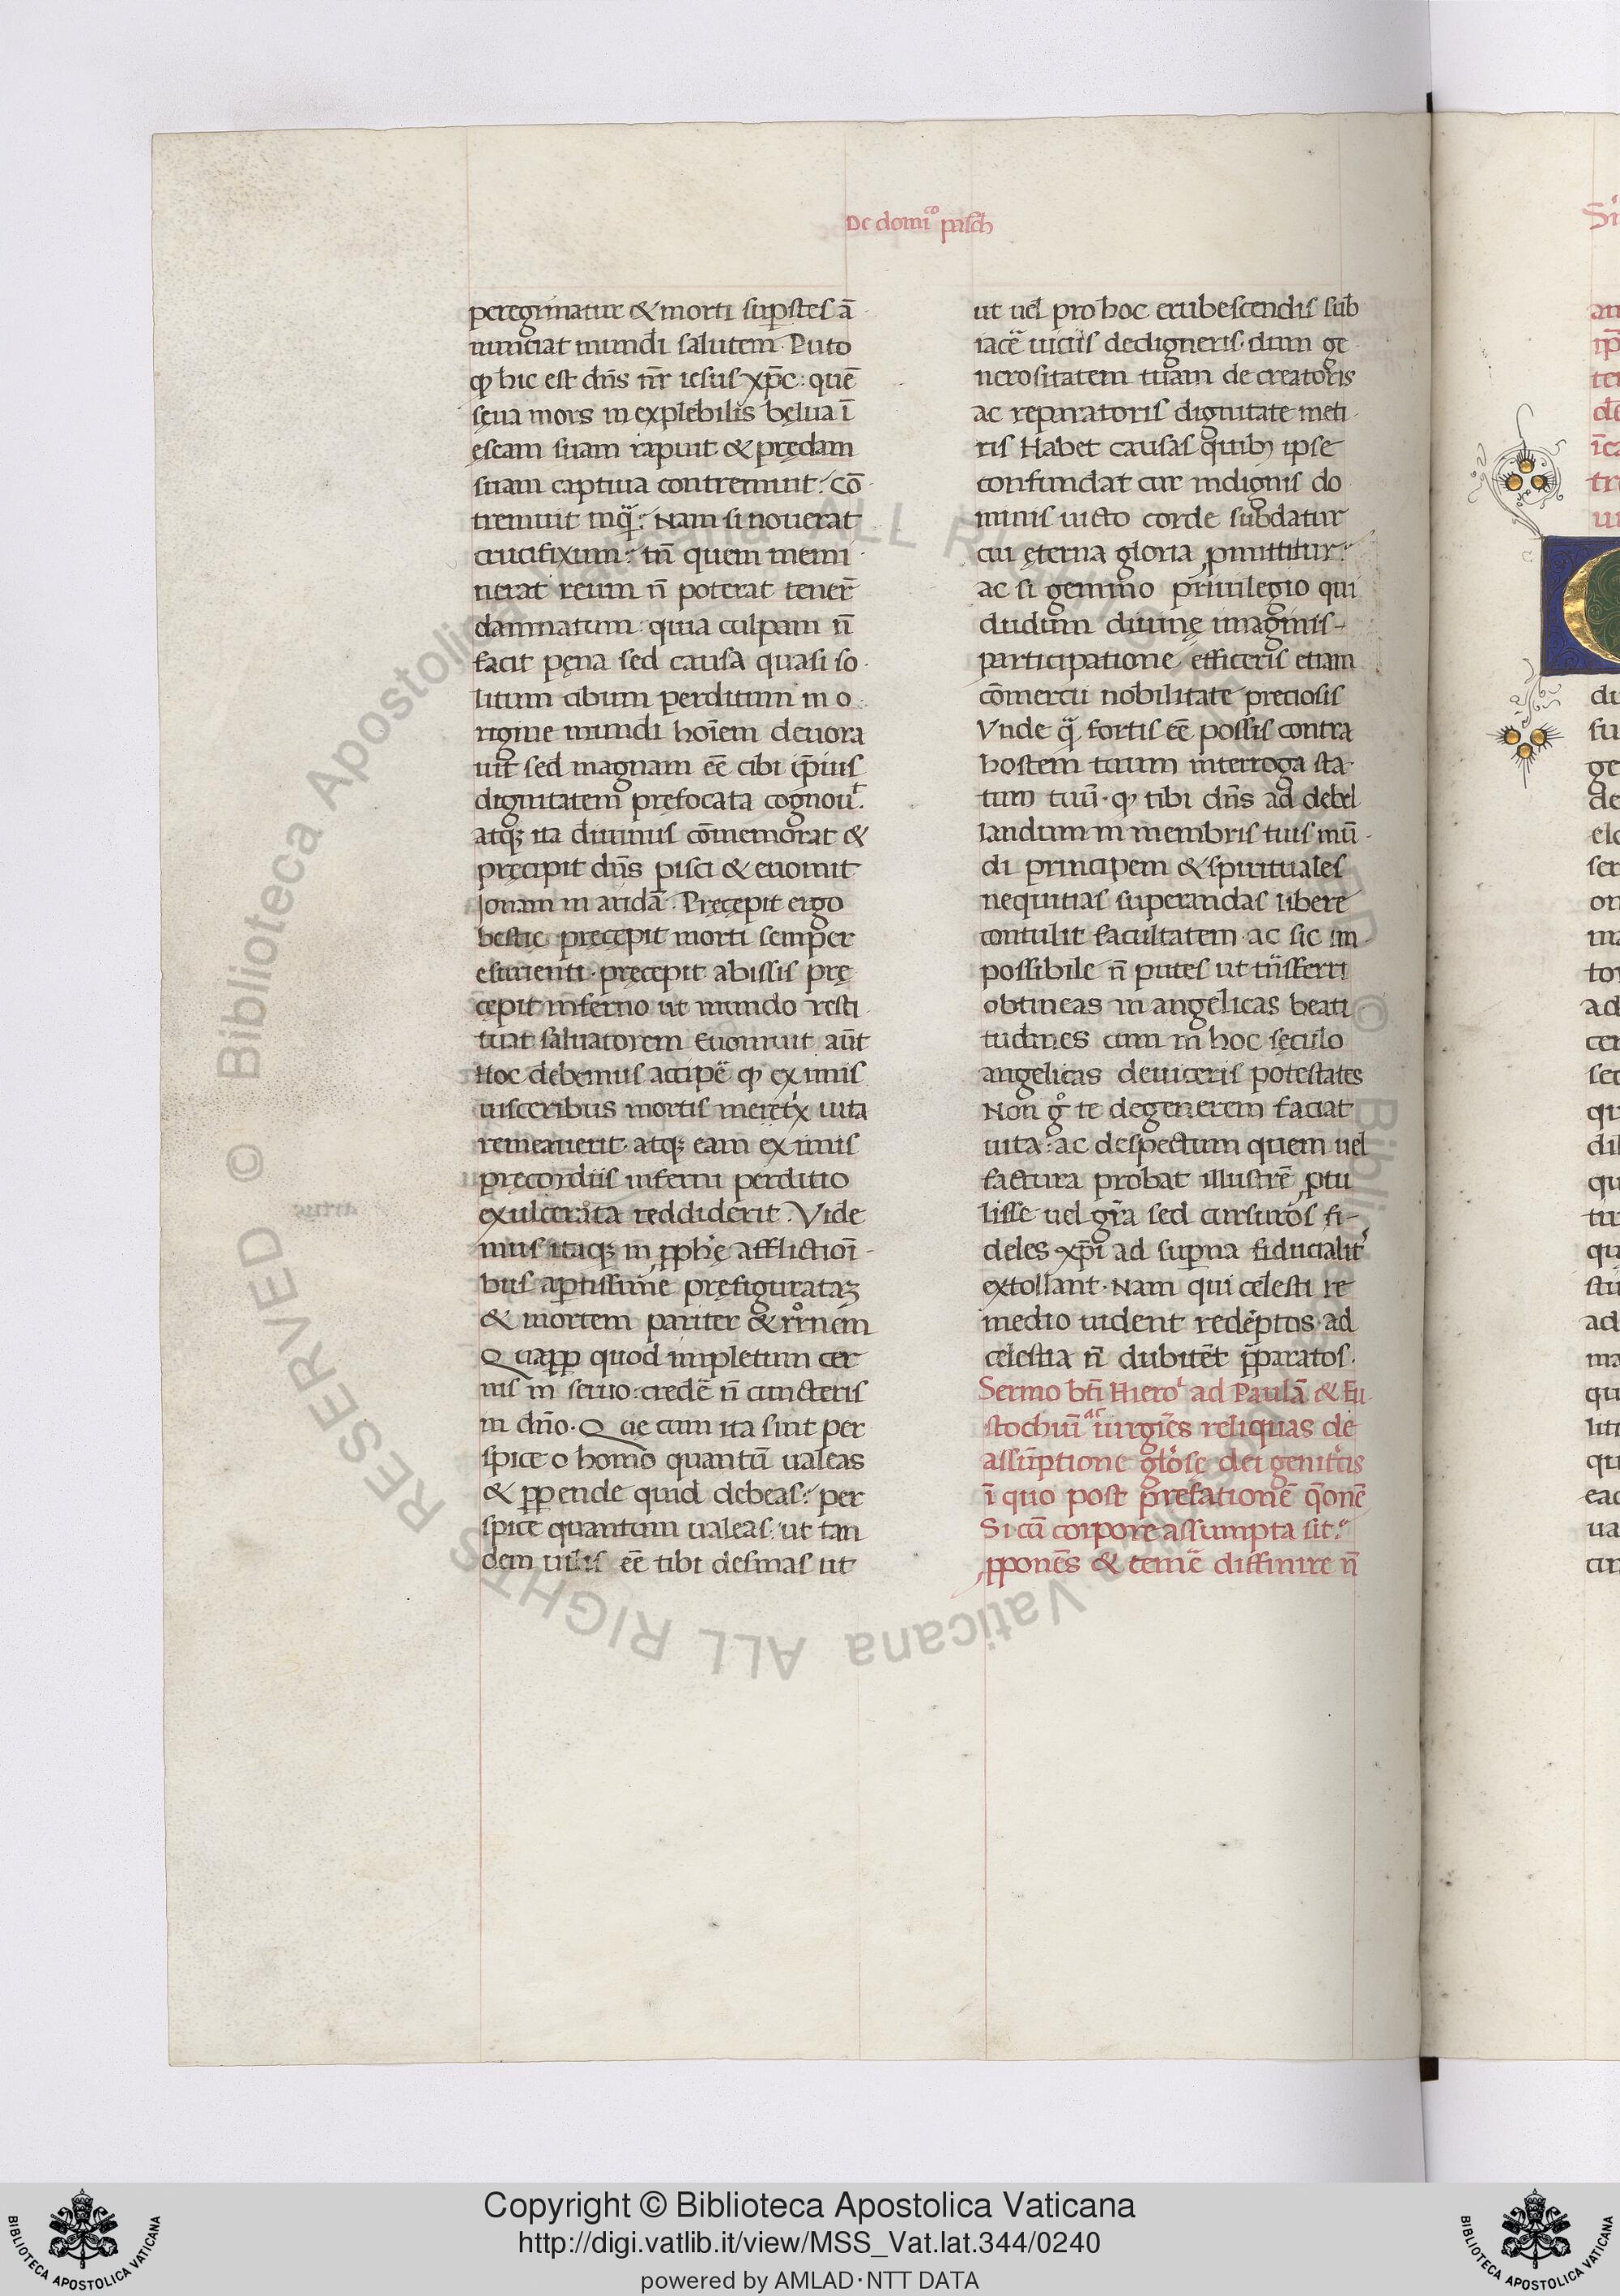 De domi͂º pasch
peregrinatur & morti sup̱stes ā
nunciat mundi salutem. Puto
ꝙ hic est dn̄s nr̄ iesus xp̄c: quē
sęua mors inexplebilis bęlua ī
ęscam suam rapuit & prędam
suam captiua contremuit. Cō
tremuit inq̄. Nam si nouerat
crucifixum: tn̄ quem memi
nerat reum n̄ poterat tener̄
damnatum: quia culpam n̄
facit pęna sed causa quasi so
litum cibum perditum in o
rigine mundi hoīem deuora
uit sed magnam eē cibi ip̄ius
dignitatem prefocata cognouᵗ.
atqꝫ ita diuinus cōmemorat &
pręcipit dn̄s pisci & euomit
Jonam in aridā. Pręcepit ergo
bestię pręcepit morti semper
esurienti. pręcepit abissis prę
cepit inferno ut mundo resti
tuat saluatorem Euomuit aūt
Hoc debemus accipē ꝙ ex imis
uisceribus mortis meretx̄ uita
remeauerit. atqꝫ eam ex imis
pręcordiis inferni perditio
exulcerata reddiderit. Vide
mus itaqꝫ in ꝓphę afflictiōi
bus aptissime pręfiguratāꝫ
& mortem pariter & rr̄nem
Quaꝓp quod impletum cer
nis in seruo: credē n̄ cuncteris
in dn̄o. Quę cum ita sint per
spice o homo quantū ualeas
& ꝓpende quid debeas: per
spice quantum ualeas. ut tan
dem uilis eē tibi desinas ut
ut uel pro hoc erubescendis sub
iacē uiciis dedigneris. dum ge
nerositatem tuam de creatoris
ac reparatoris dignitate meti
ris Habet causas quibꝫ ipse
confundat cur indignis do
minis uicto corde subdatur
cui ęterna gloria ꝓmittitur:
ac si gemino priuilegio qui
dudum diuinę imaginis
participatione efficeris etiam
cōmercii nobilitate preciosis
Vnde q̄ fortis eē possis contra
hostem tuum interroga sta
tum tuū. ꝙ tibi dn̄s ad debel
landum in membris tuis mū
di principem & spirituales
nequitias superandas libere
contulit facultatem. ac sic im
possibile n̄ putes ut tn̄sferri
obtineas in angelicas beati
tudines cum in hoc sęculo
angelicas deuiceris potestates
Non gº te degenerem faciat
uita: ac despectum quem uel
factura probat illustrē ꝓtu
lisse uel gr̄a sed cursuros fi
deles xp̄i ad sup̱na fiducialit̄
extollant. Nam qui celesti re
medio uident redēptos. ad
cęlestia n̄ dubitēt p̄paratos.
Sermo btī Hieroᶫ ad Paulā & Eu
stochiū ac uirgiēs reliquas de
assūptione glōse dei genitͥcis
ī quo post prefationē q̄onē
Si cū corpore assumpta sit.
ꝓponēs & temē diffinire n̄
Copyright © Biblioteca Apostolica Vaticana
http://digi.vatlib.it/view/MSS_Vat.lat.344/0240
powered by AMLAD·NTT DATA
BIBLIOTECA APOSTOLICA VATICANA
BIBLIOTECA APOSTOLICA VATICANA